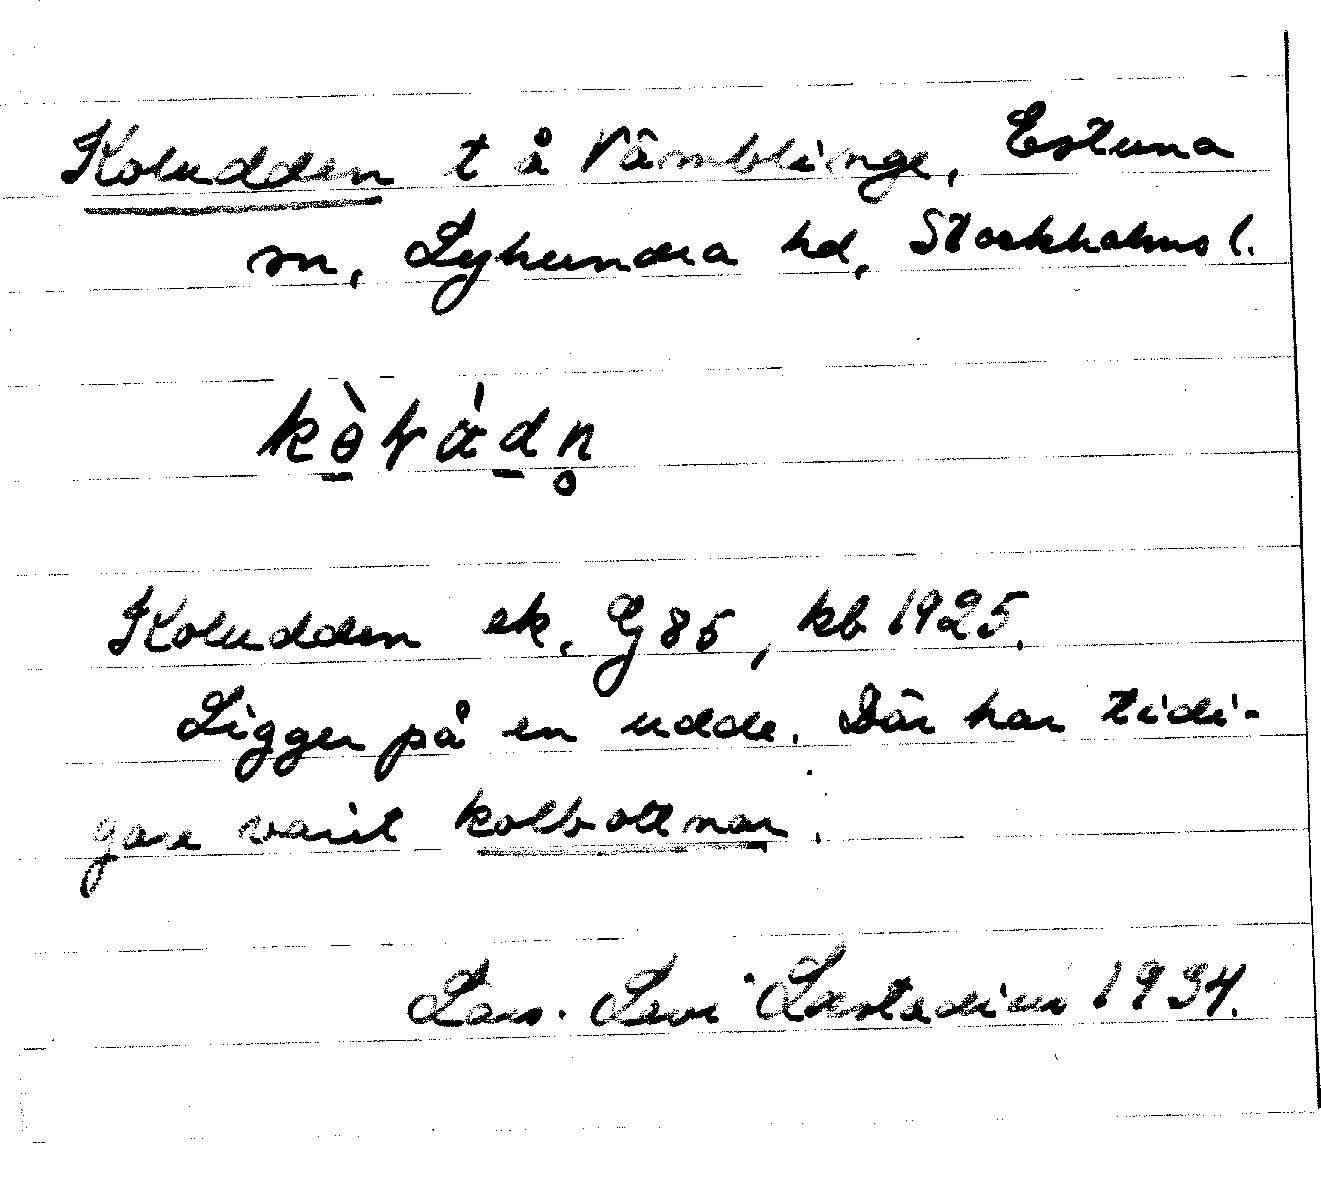 Koludden t å Vämblinge, Estuna
sn, Lyhundra hd, Stockholms l.
Koludden ek. G 85, kb 1925.
Ligger på en udde. Där har tidi-
gare varit kolbottnar.
Lars-Levi Læstadius 1934.